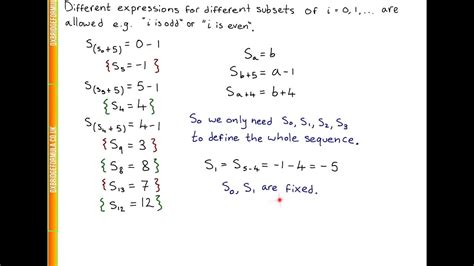 Different expressions for different subsets of i = 0, 1, ... are
allowed e.g. "i is odd" or "i is even".
S(S₀+5) = 0 - 1
{S₅ = -1}
S(S₅+5) = 5 - 1
{S₄ = 4}
S(S₄+5) = 4 - 1
{S₉ = 3}
{S₈ = 8}
{S₁₃ = 7}
{S₁₂ = 12}
Sₐ = b
S_b+5 = a - 1
Sₐ₊₄ = b + 4
So we only need S₀, S₁, S₂, S₃
to define the whole sequence.
S₁ = S₅₋₄ = -1 - 4 = -5
S₀, S₁ are fixed.
OXBRIDGEFORMULA.CO.UK